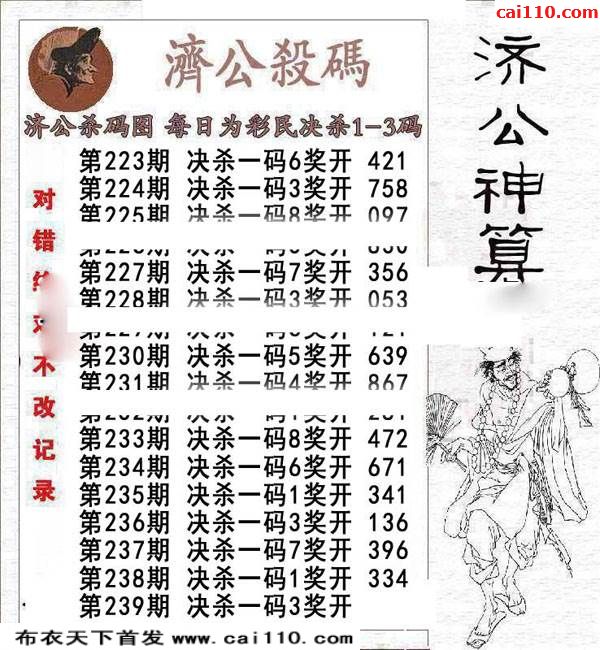 cai110.com
濟公殺碼
济公神算
济公杀码图 每日为彩民决杀1-3码
对错绝对不改记录
第223期 决杀一码6奖开 421
第224期 决杀一码3奖开 758
第225期 决杀一码8奖开 097
第227期 决杀一码7奖开 356
第228期 决杀一码3奖开 053
第230期 决杀一码5奖开 639
第231期 决杀一码4奖开 867
第233期 决杀一码8奖开 472
第234期 决杀一码6奖开 671
第235期 决杀一码1奖开 341
第236期 决杀一码3奖开 136
第237期 决杀一码7奖开 396
第238期 决杀一码1奖开 334
第239期 决杀一码3奖开
布衣天下首发 www.cai110.com